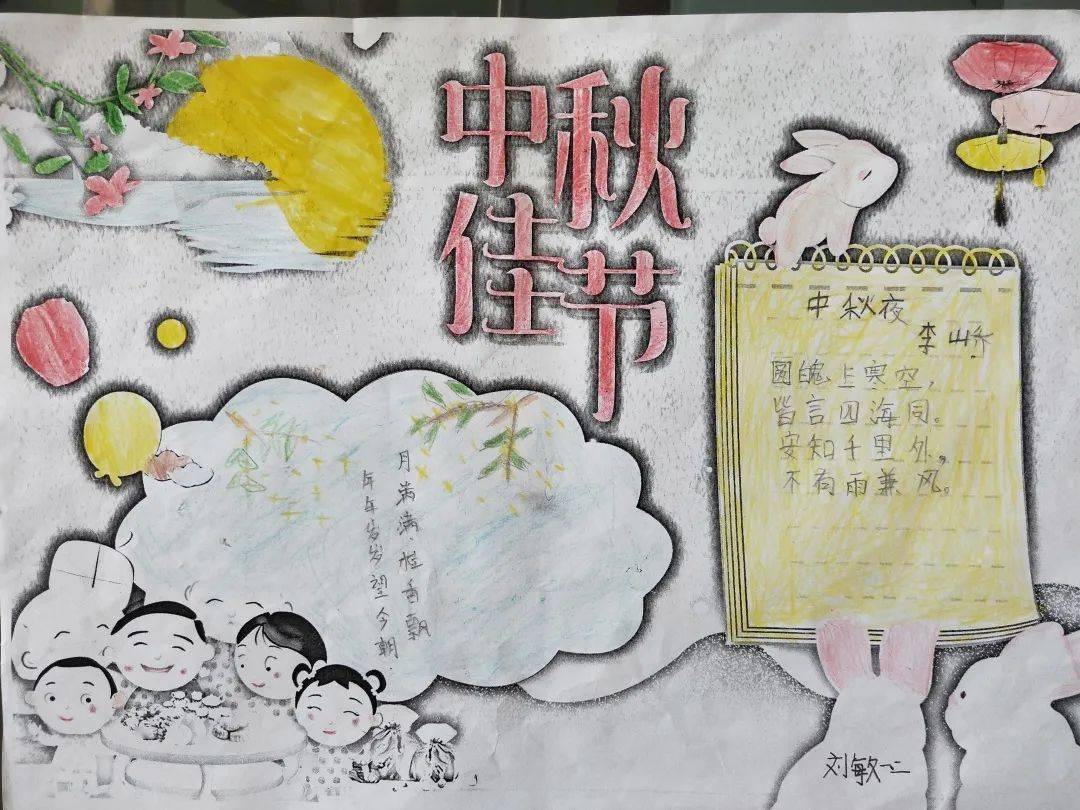 中秋
佳节
中秋夜
李峤
圆魄上寒空，
皆言四海同。
安知千里外，
不有雨兼风。
月满满桂香飘
年年岁岁望今朝
刘敏